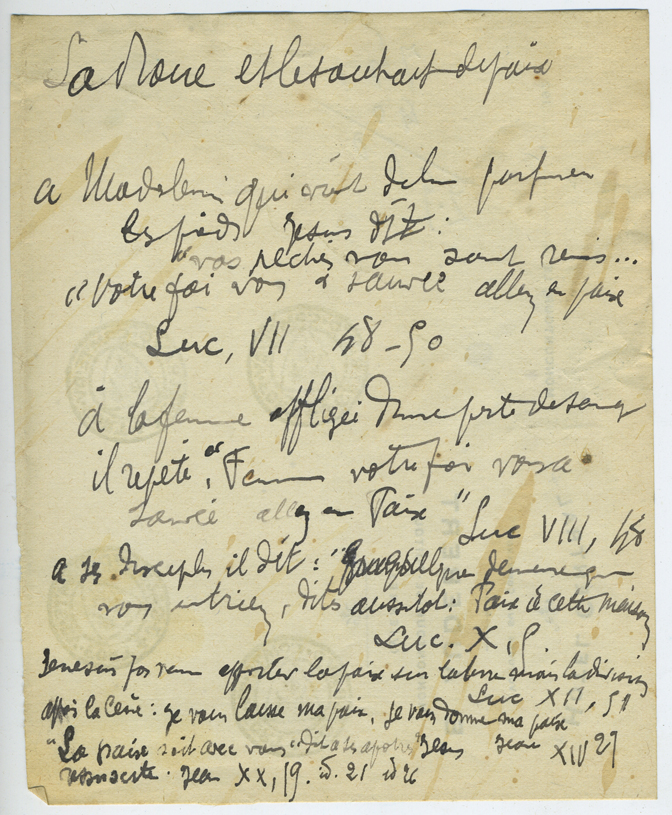 La Douce et le souhait de paix
a Madeleine qui vient de lui parfumer
les pieds Jesus dit :
"vos péchés vous sont remis...
"Votre foi vous a sauvée allez en paix
Luc, VII 48-50
à la femme affligée d'une perte de sang
il repète, "Femme votre foi vous a
sauvée allez en Paix"
Luc VIII, 48
a ses disciples il dit : "quelque demeure que
vous entriez, dites aussitot : Paix à cette maison
Luc. X, 5.
Je ne suis pas venu apporter la paix sur la terre mais la division
Luc XII, 51
après la Cène : je vous laisse ma paix, je vous donne ma paix
Jean XIV 27
"La paix soit avec vous" dit a ses apotres Jesus
ressuscité. Jean XX, 19. id. 21 id 26